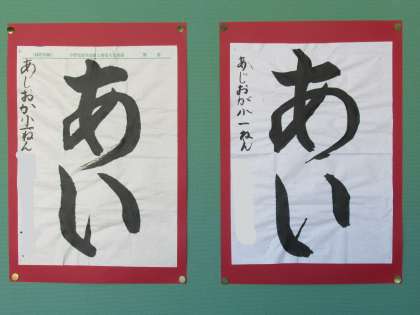 あい
あじおか小一ねん
あい
あじおか小一ねん